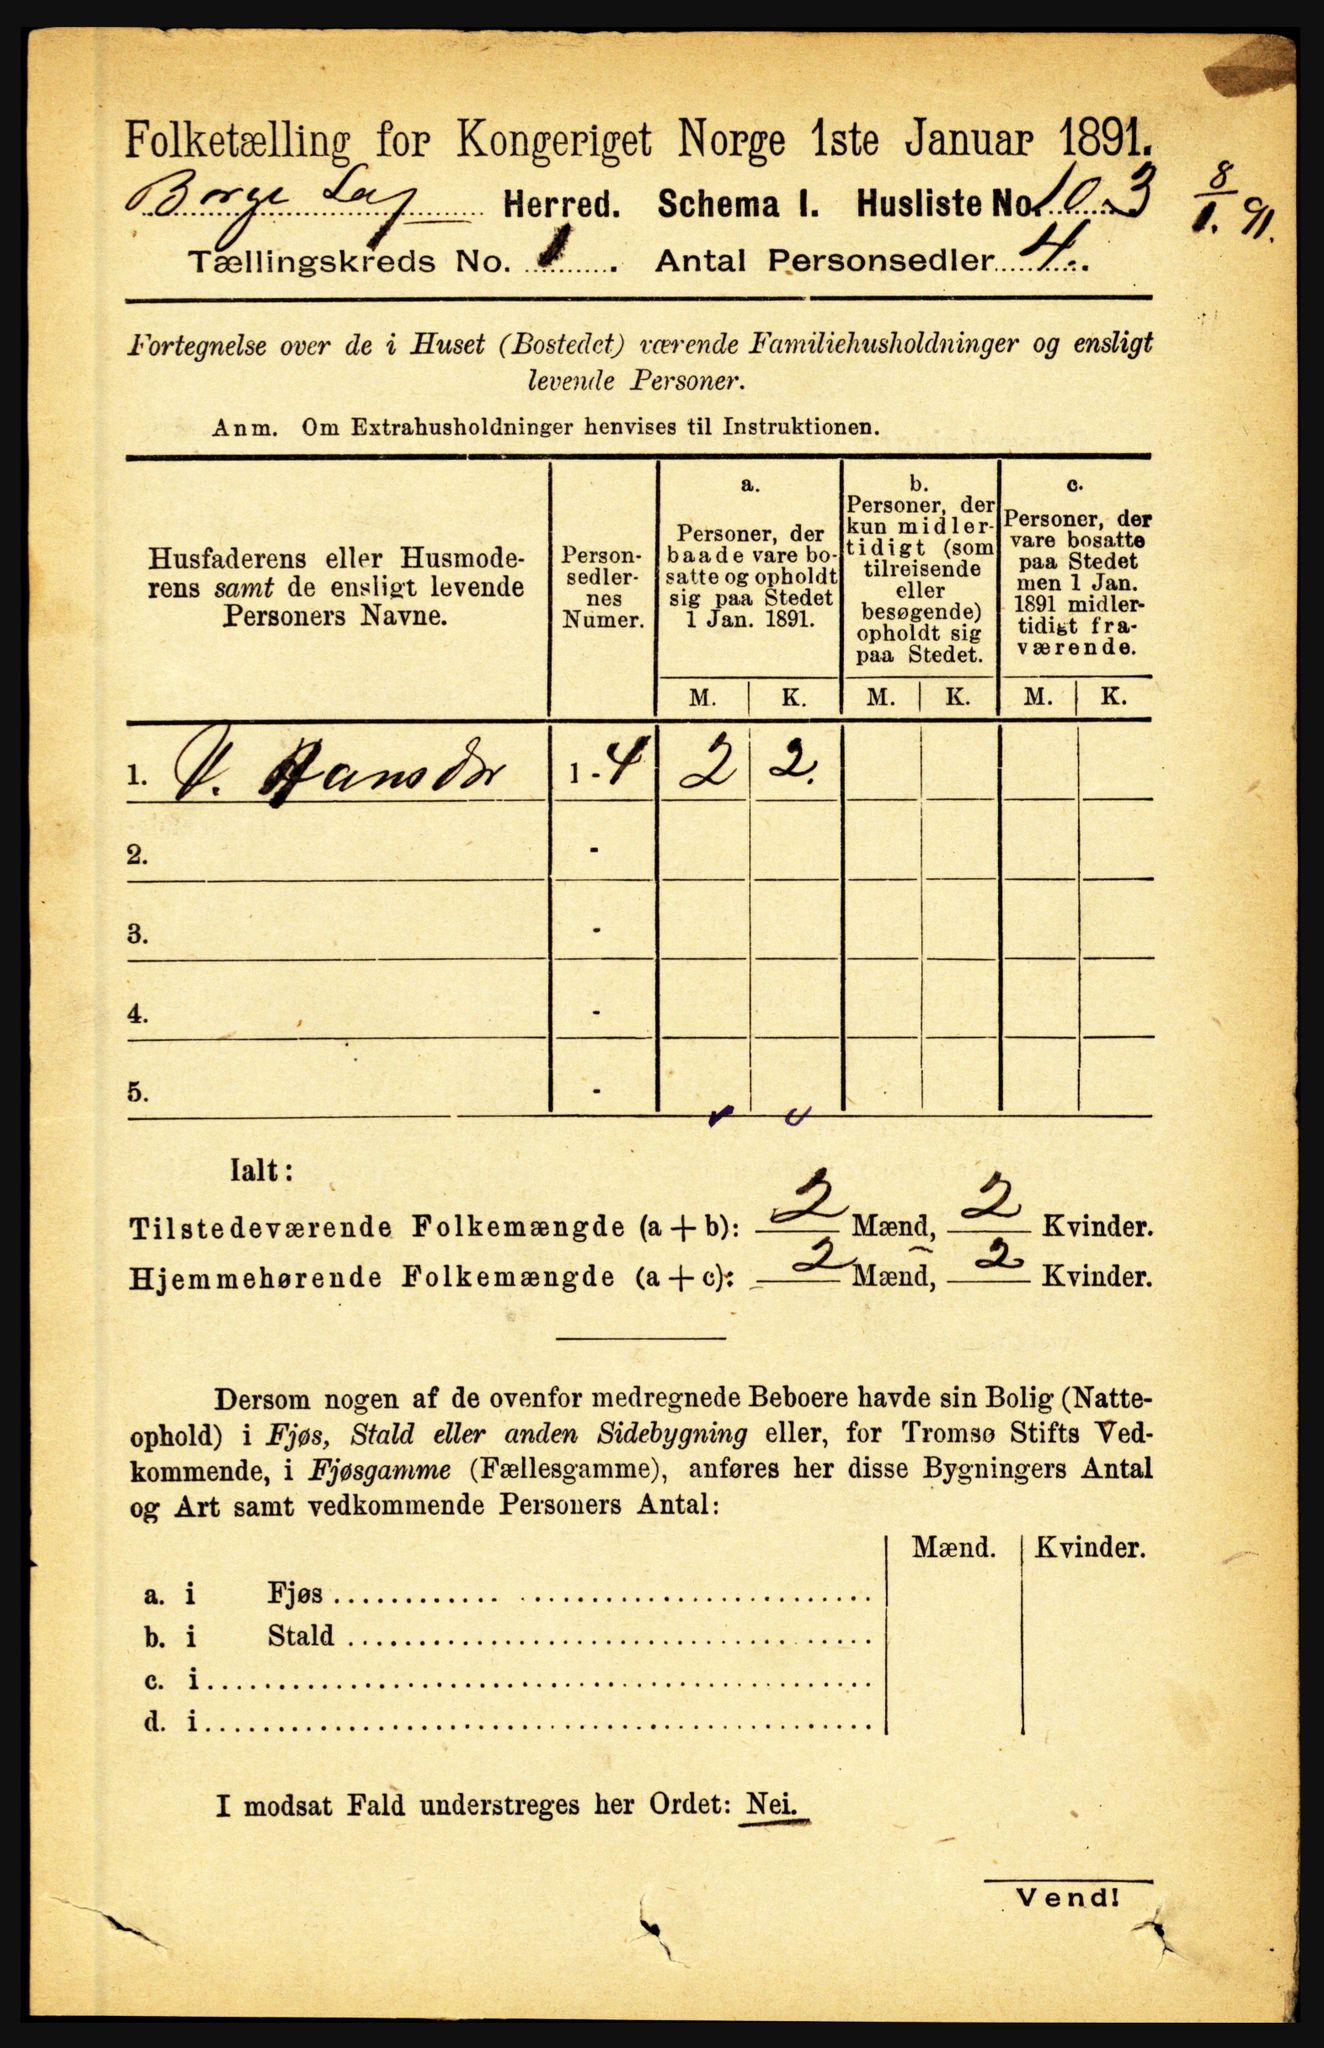 Folketælling for Kongeriget Norge 1ste Januar 1891.
Borge Herred. Schema I. Husliste No. 103 8/1. 91.
Tællingskreds No. 1. Antal Personsedler 4.
Fortegnelse over de i Huset (Bostedet) værende Familiehusholdninger og ensligt
levende Personer.
Anm. Om Extrahusholdninger henvises til Instruktionen.
Husfaderens eller Husmode-
rens samt de ensligt levende
Personers Navne.
Person-
sedler-
nes
Numer.
a.
Personer, der
baade vare bo-
satte og opholdt
sig paa Stedet
1 Jan. 1891.
b.
Personer, der
kun midler-
tidigt (som
tilreisende
eller
besøgende)
opholdt sig
paa Stedet.
c.
Personer, der
vare bosatte
paa Stedet
men 1 Jan.
1891 midler-
tidigt fra-
værende.
M. K. M. K. M. K.
1. V. Hansdr 1-4 2 2.
2. -
3. -
4. -
5. -
Ialt:
Tilstedeværende Folkemængde (a + b): 2 Mænd, 2 Kvinder.
Hjemmehørende Folkemængde (a + c): 2 Mænd, 2 Kvinder.
Dersom nogen af de ovenfor medregnede Beboere havde sin Bolig (Natte-
ophold) i Fjøs, Stald eller anden Sidebygning eller, for Tromsø Stifts Ved-
kommende, i Fjøsgamme (Fællesgamme), anføres her disse Bygningers Antal
og Art samt vedkommende Personers Antal:
Mænd. Kvinder.
a. i Fjøs
b. i Stald
c. i
d. i
I modsat Fald understreges her Ordet: Nei.
Vend!